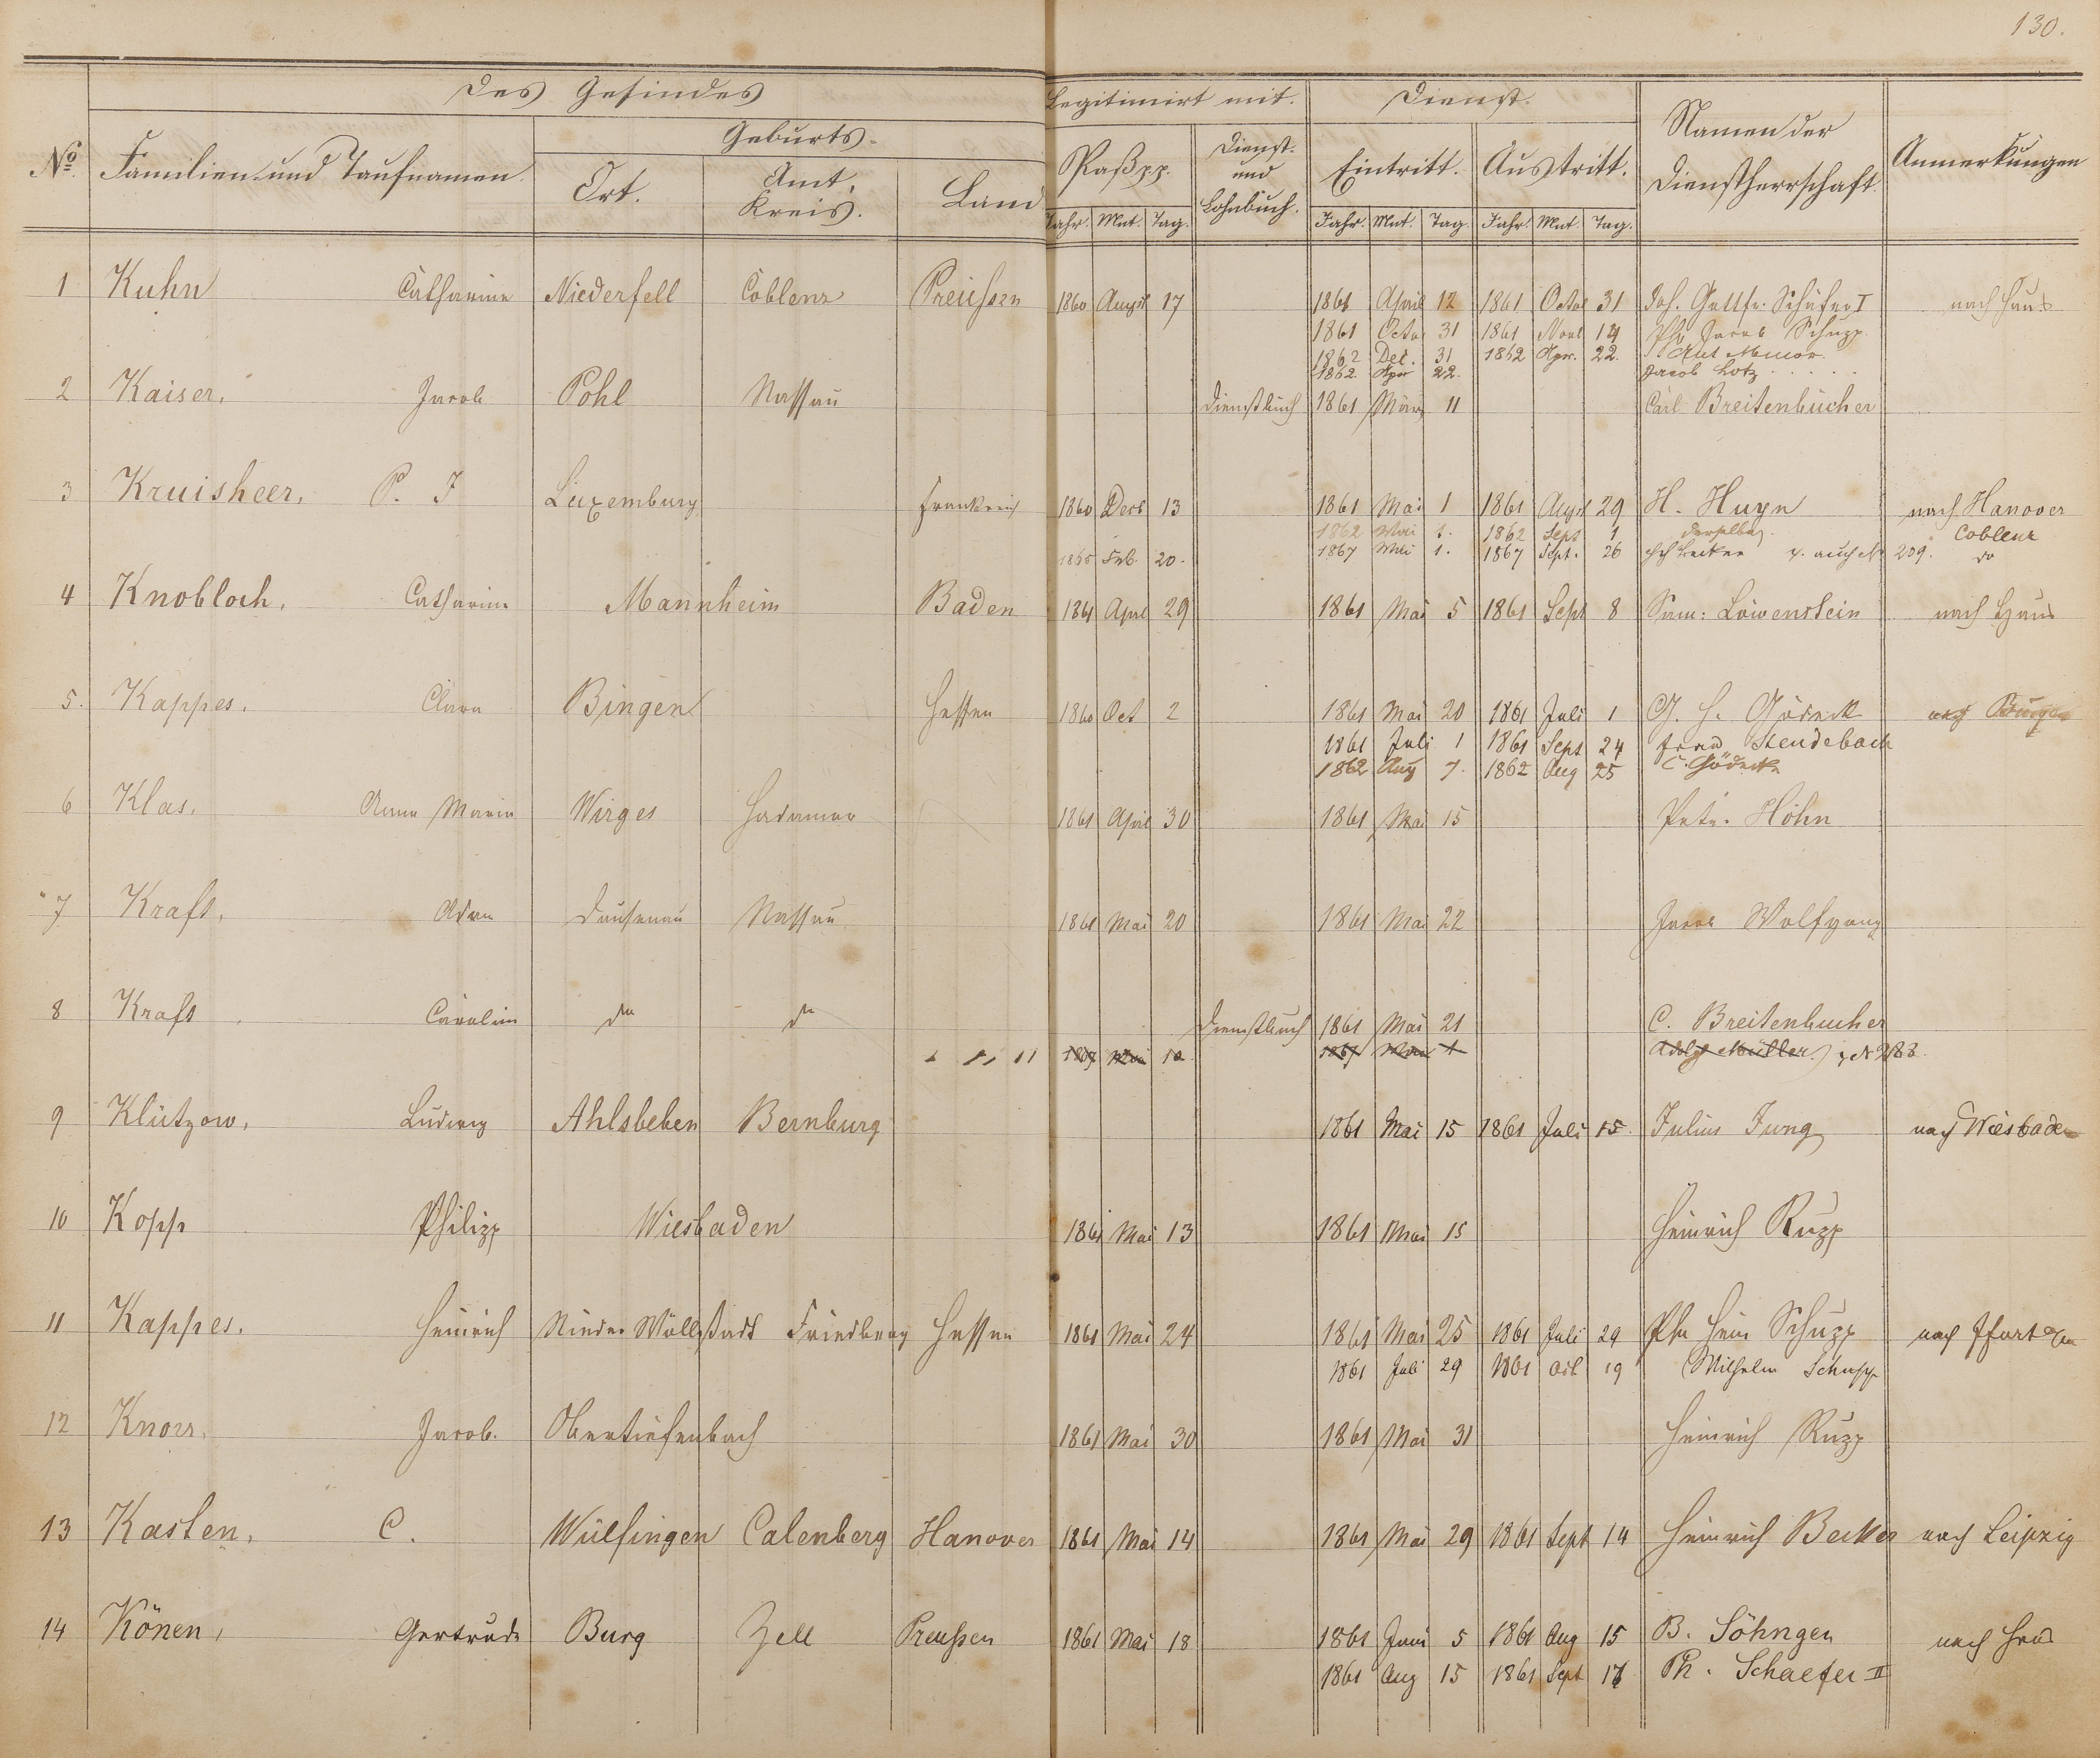 130.
Des Gesindes Legitimirt mit. Dienst.
No. Familien- und Taufnamen. Geburts- Paß pp. Dienst- und Lohnbuch. Eintritt. Austritt. Namen der Dienstherrschaft. Anmerkungen
Ort. Amt, Kreis. Land
Jahr. Mnt. Tag. Jahr. Mnt. Tag. Jahr. Mnt. Tag.
1 Kuhn Catharine Niederfell Coblenz Preußen 1860 August 17 1861 April 12 1861 Octob 31 Joh. Gottfr. Schäfer I nach Haus
1861 Octo 31 1861 Novb 14 Ph. Jacob Schupp
1862 Dec. 31 1862 Apr. 22.
1862. Apr 22. Jacob Lotz
2 Kaiser, Jacob Pohl Nassau Dienstbuch 1861 März 11 Carl Breitenbücher
3 Kruisheer, P. J Luxemburg Frankreich 1860 Decb 13 1861 Mai 1 1861 Augst 29 H. Huyn nach Hanover
1862 Mai 1. 1862 Sept 1 derselbe. " Coblenz
Feb. 20. 1867 Mai 1. 1867 Sept. 26 Becker s. auch No 209. do
4 Knobloch, Catharine Mannheim Baden 1861 April 29 1861 Mai 5 1861 Sept 8 Sam: Löwenstein nach Haus
5. Kappes, Clara Bingen Hessen 1860 Oct 2 1861 Mai 20 1861 Juli 1 G. H. Gödeck nach Bingen
1861 Juli 1 1861 Sept 24 Frau Steudebach
1862 Aug 7. 1862 Aug 25 C. Gödecke
6 Klas, Anna Maria Wirges Hadamar 1861 April 30 1861 Mai 15 Peter Höhn
7 Kraft, Adam Dausenau Nassau 1861 Mai 20 1861 Mai 22 Jacob Wolfgang
8 Kraft, Carolin do do Dienstbuch 1861 Mai 21 C. Breitenbucher
1867 Mai 10 1867 Mai 1 Adolf Müller) s. No 283.
9 Klützow, Ludwig Ahlsleben Bernburg 1861 Mai 15 1861 Juli 15. Julius Jung nach Wiesbaden
10 Kopp Philipp Wiesbaden 1861 Mai 13 1861 Mai 15 Heinrich Rupp
11 Kappes, Heinrich Nieder Wöllstadt Friedberg Hessen 1861 Mai 24 1861 Mai 25 1861 Juli 29 Ph Hein Schupp nach Ffurt a/m
1861 Juli 29 1861 Oct 19 Wilhelm Schupp
12 Knorr, Jacob. Obertiefenbach 1861 Mai 30 1861 Mai 31 Heinrich Rupp
13 Kasten, C. Wülfingen Calenberg Hanover 1861 Mai 14 1861 Mai 29 1861 Sept 14 Heinrich Becker nach Leipzig
14 Könen, Gertrude Burg Zell Preußen 1861 Mai 18 1861 Juni 5 1861 Aug 15 B. Söhngen nach Haus
1861 Aug 15 1861 Sept 17 Ph. Schaefer II